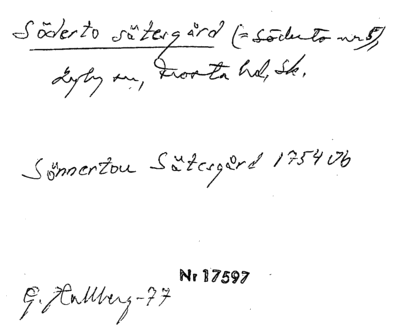 Söderto sätesgård (= Söderto nr 5),
Lyby sn, Frosta hd, Sk.
Sönnertou Sätesgård 1754 Jb
Nr 17597
G. Hallberg-77